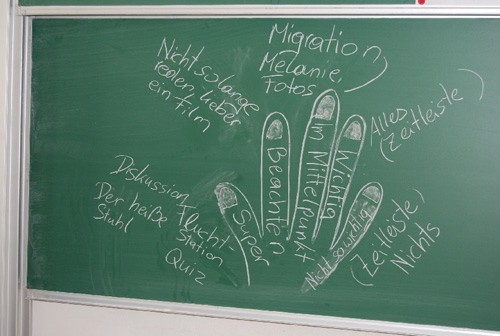 Migration
Melanie,
Fotos
Nicht so lange
reden lieber
ein Film
Alles
(Zeitleiste)
Beachten
Im Mittelpunkt
Wichtig
Super
Nicht so wichtig
Diskussion
Der heiße
Stuhl
Flucht-
Station
Quiz
(Zeitleiste)
Nichts